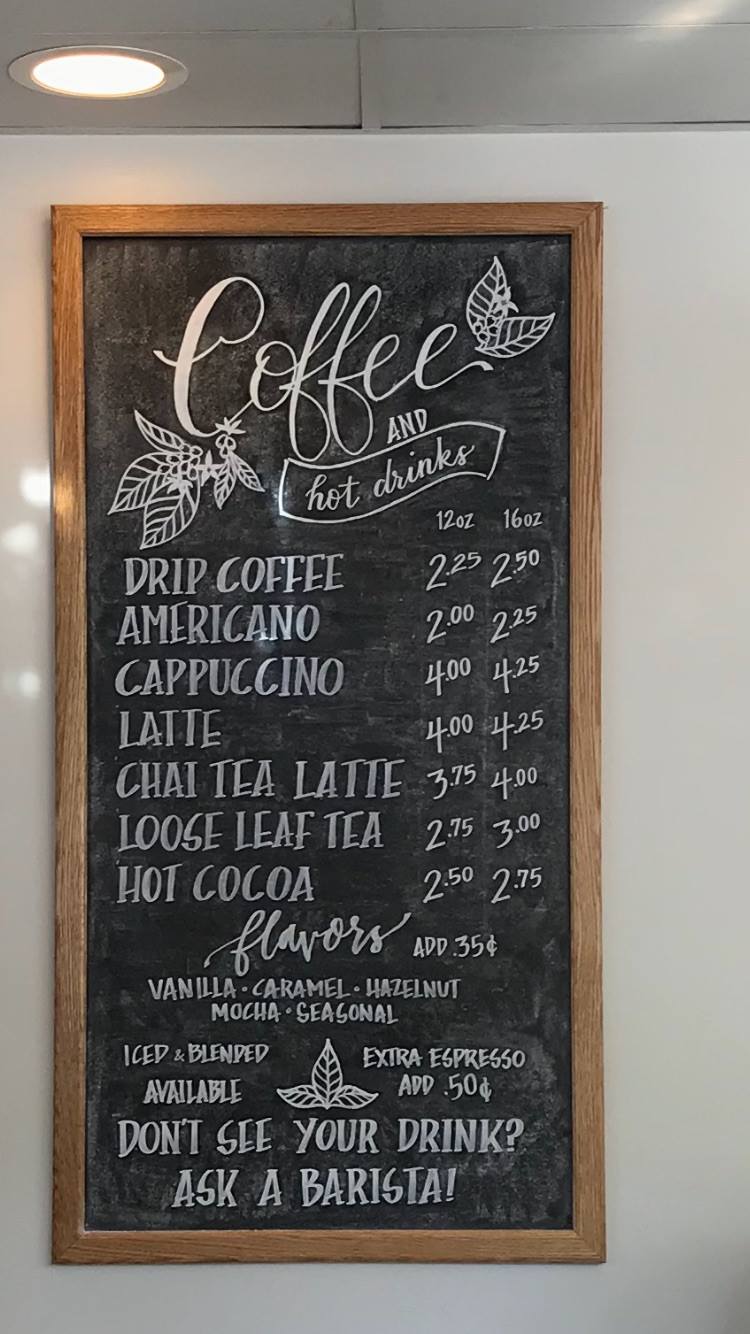 Coffee
AND
hot drinks
12OZ 16OZ
DRIP COFFEE 2.25 2.50
AMERICANO 2.00 2.25
CAPPUCCINO 4.00 4.25
LATTE 4.00 4.25
CHAI TEA LATTE 3.75 4.00
LOOSE LEAF TEA 2.75 3.00
HOT COCOA 2.50 2.75
flavors ADD .35¢
VANILLA • CARAMEL • HAZELNUT
MOCHA • SEASONAL
ICED & BLENDED
AVAILABLE
EXTRA ESPRESSO
ADD .50¢
DON'T SEE YOUR DRINK?
ASK A BARISTA!